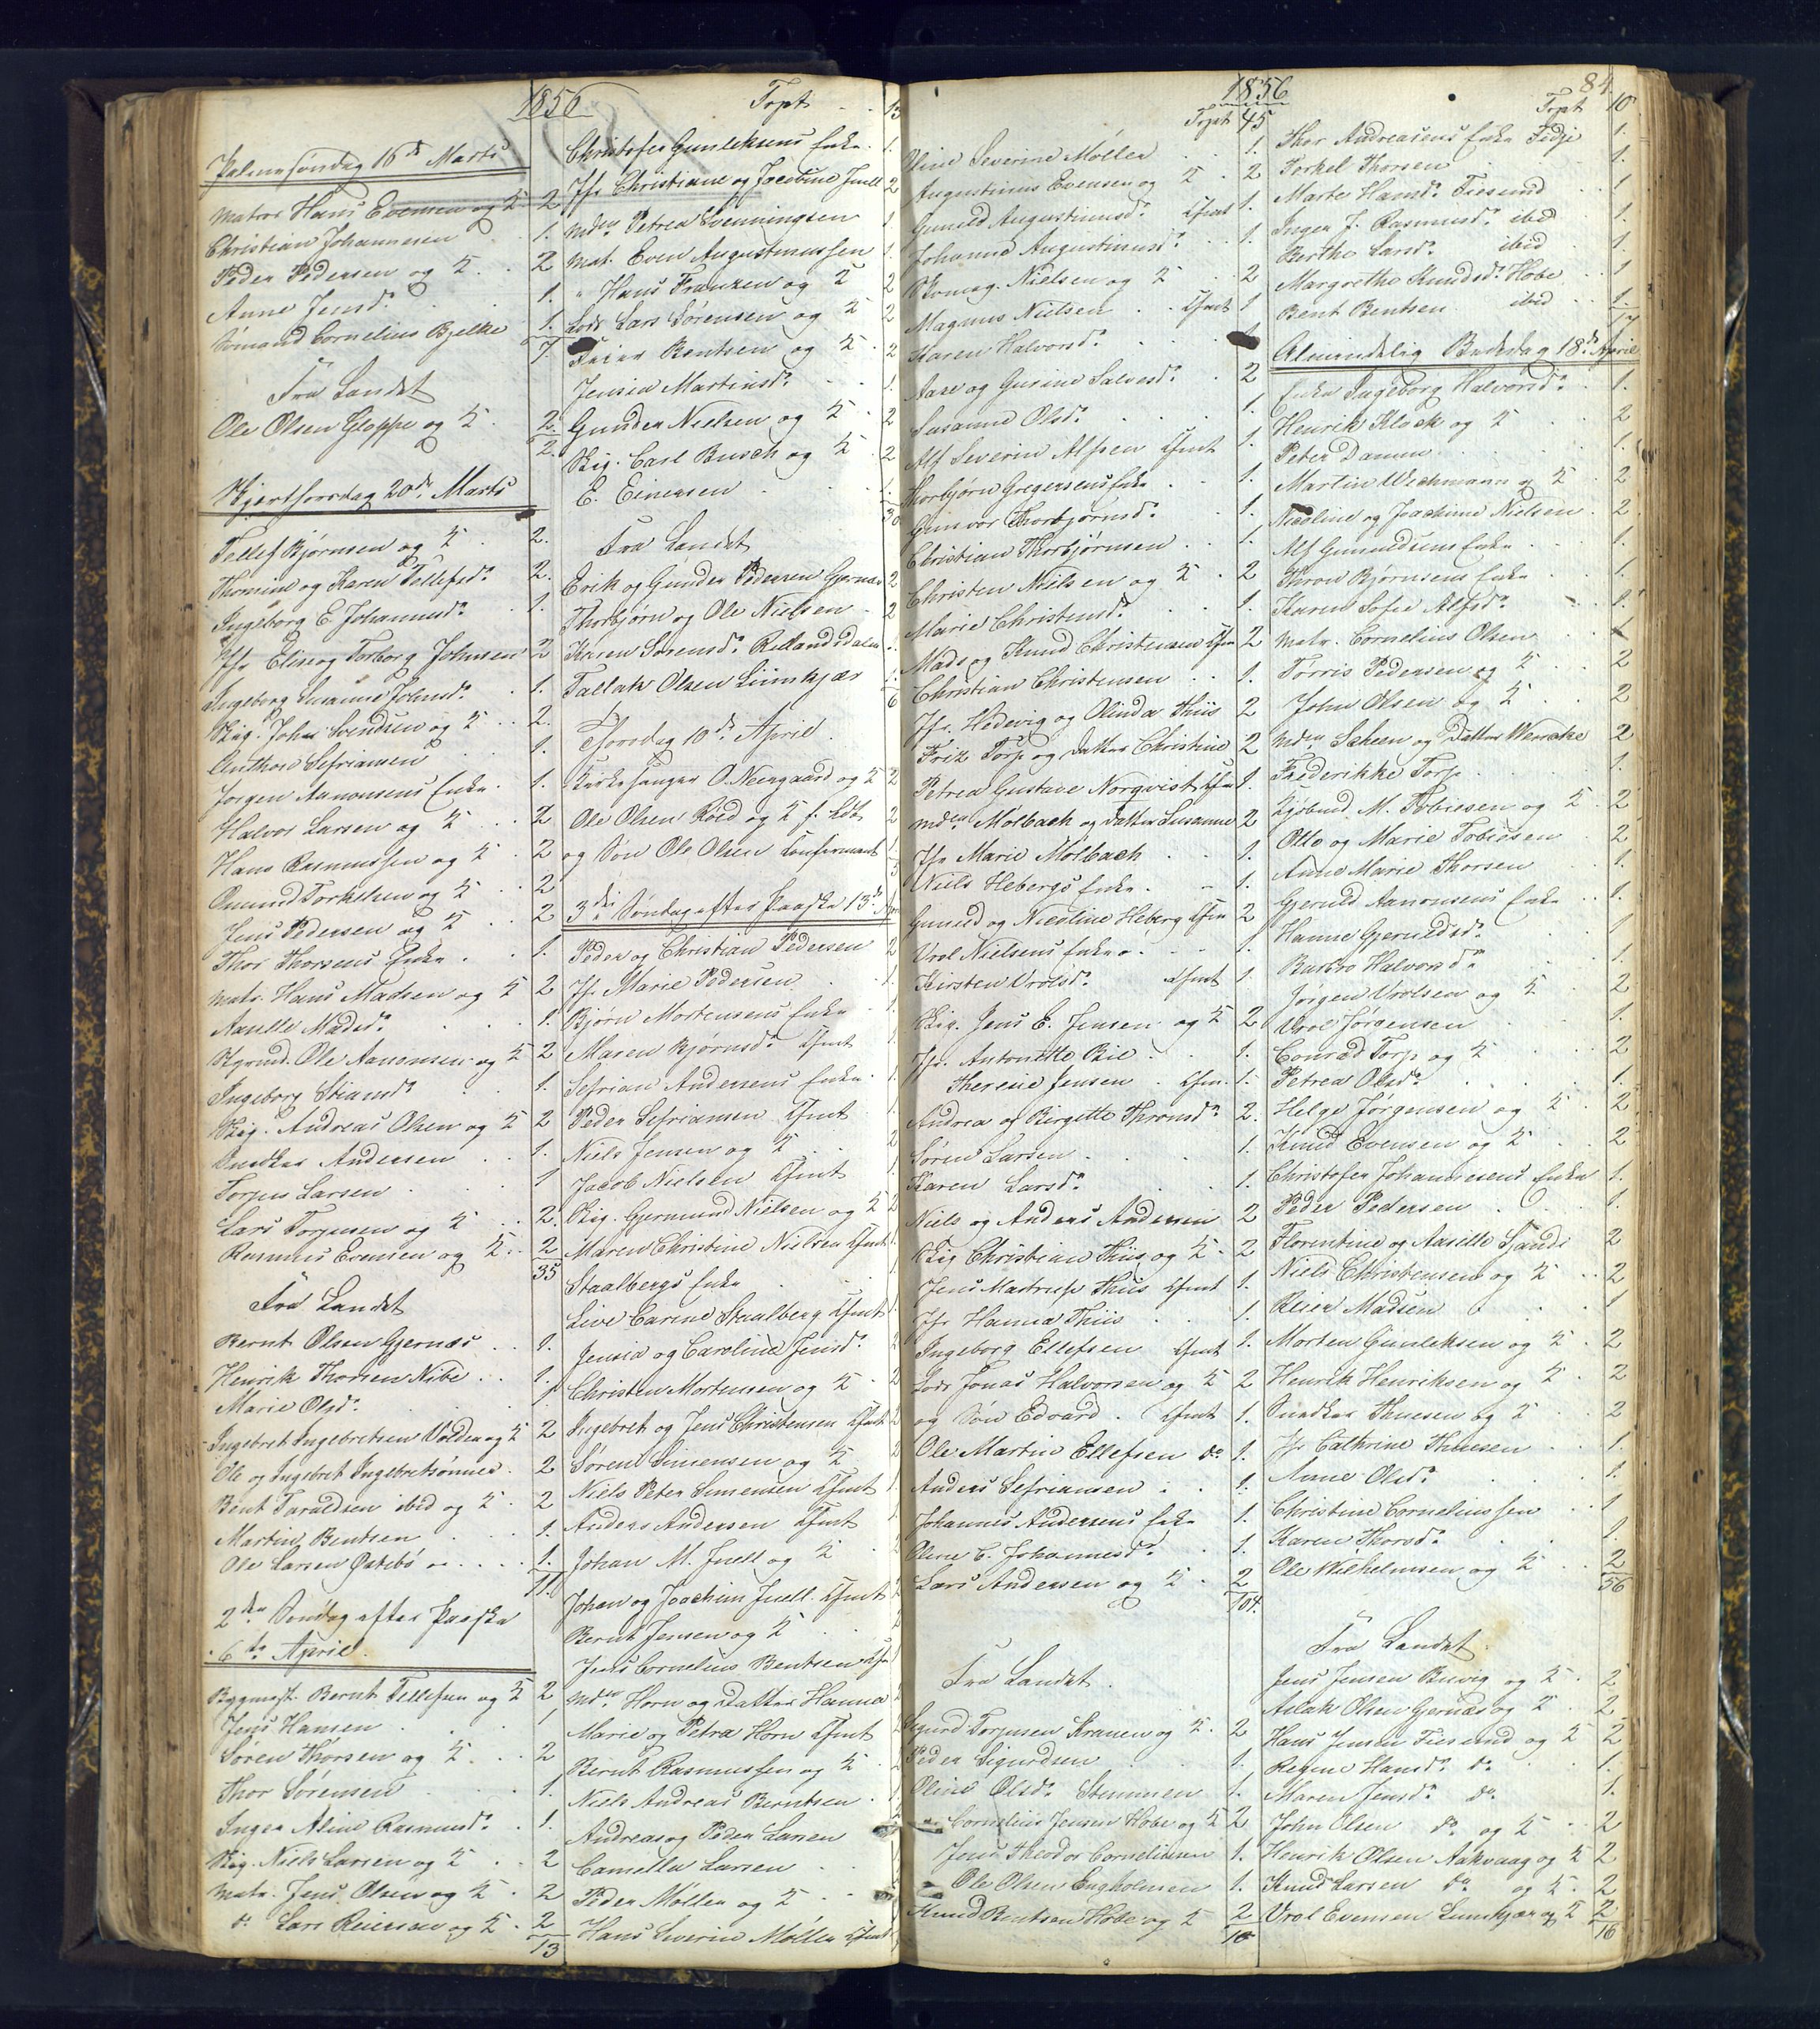 1856
Palmesøndag 16de Marts
Matros Hans Evensen og K 2
Christian Johannesen 1.
Peder Pedersen og K. 2
Anne Jensd. 1.
Sømand Cornelius Bjelke 1.
7.
Fra Landet
Ole Olsen Gloppe og K 2.
2.
Skjærthorsdag 20de Marts
Tellef Bjørnsen og K 2.
Thomine og Karen Tellefsd. 2.
Ingeborg E. Johannesd. 1.
Jfr Elise og Torborg Johnsen 2
Ingeborg Susanne Johnsd. 1.
Skip. John Svendsen og K 2.
Anthon Sefriansen 1.
Jørgen Aanonsens Enke 1.
Halvor Larsen og K 2
Hans Rasmussen og K 2
Omund Torkelsen og K 2
Jens Pedersen og K 2
Thor Thorsens Enke 1.
Matr. Hans Madsen og K 2
Aaselle Madsd. 1.
Ole Aanonsen og K 2
Ingeborg Stiansd. 1.
Skip. Andreas Olsen og K 2
Snedker Andersen 1.
Torjus Larsen 1
Lars Torjusen og K 2.
Rasmus Evensen og K 2
35
Fra Landet
Bernt Olsen Gjernæs 1.
Henrik Thorsen Nibe 1.
Marie Olsd. 1
Ingebret Ingebretsen Valden og K 2
Ole og Ingebret Ingebretsønner 2
Bent Taraldsen ibid og K 2
Martin Bentsen 1.
Ole Larsen Østebø 1.
11.
2den Søndag efter Paaske
6te April
Bygmest. Bernt Tellefsen og K 2
Jens Hansen 1
Søren Thorsen og K 2
Thor Sørensen 1.
Inger Aline Rasmusd. 1.
Skip. Niels Larsen og K 2
Matr. Jens Olsen og K 2
do Lars Reiersen og K 2
13
Trpt 13
Christofer Gunleksens Enke 1.
Jfr Christiane og Jacobine Juell 2
Mdm Petrea Svenningsen 1
Mat. Even Augustinussen 1
" Hans Franzen og K 2
Lods Lars Sørensen og K 2
Reier Bentsen og K 2
Jensia Martinsd. 1.
Gunder Nielsen og K 2
Skip. Carl Busch og K 2
E. Einersen 1.
30
Fra Landet
Erik og Gunder Pedersen Gjernæs 2
Thorbjørn og Ole Nielsen 2
Karen Sørensd. Rellandsdalen 1
Tallak Olsen Lunnkjær 1.
6
Thorsdag 10de April
Kirkesanger O. Neergaard og K 2
Ole Olsen Röed og K f. Ldt 2
og Søn Ole Olsen Confirmant 1
5
3die Søndag efter Paaske 13de Apr
Peder og Christian Pedersen 2
Jfr Marie Pedersen 1.
Bjørn Mortensens Enke 1
Maren Bjørnsd. Cfmt 1
Sefrian Andersens Enke 1
Peder Sefriansen Cfmt 1
Niels Jensen og K 2
Jacob Nielsen Cfmt 1
Skip. Gjermund Nielsen og K 2
Maren Christine Nielsen Cfmt 1
Staalbergs Enke 1
Live Carine Staalberg Cfmt 1
Jensia og Carolina Jensd. 2
Christen Mortensen og K 2
Ingebret og Jens Christensen Cfmt 2
Søren Simensen og K 2
Niels Peter Simensen Cfmt 1
Anders Andersen Cfmt 1
Johan M. Juell og K 2
Johan og Joachim Juell Cfmt 2
Bernt Jensen og K 2
Jens Cornelius Bentsen Cfm 1
Mdm Horn og Datter Hanna 2
Marie og Petra Horn Cfmt 2
Bernt Rasmussen og K 2
Niels Andreas Berntsen 1
Andreas og Peder Larsen 2
Camilla Larsen 1
Peder Møller og K
Hans Severin Møller Cfmt 1
1856
84.
Trpt 45
Oline Severine Møller 1.
Augustinus Evensen og K 2
Gunild Augustinusd. Cfmt 1.
Johanne Augustinusd. 1.
Skomag. Nielsen og K 2
Magnus Nielsen Cfmt 1
Karen Halvorsd.
Aase og Gurine Salvesd. 2
Susanne Olsd. 1.
Alf Severin Alfsen Cfmt 1
Thorbjørn Gregersens Enke 1.
Gunvor Thorbjørnsd. 1.
Christian Thorbjørnsen 1.
Christen Nielsen og K 2
Marie Christensd. 1.
Mads og Knud Christensen Cfm 2
Christian Christensen 1.
Jfr. Hedevig og Olinda Thiis 2
Fritz Torp og Datter Christine 2
Petrea Gustave Norqvist Cfm 1.
Mdm Molbach og Datter Susanne 2
Jfr Marie Molbach 1.
Niels Hebergs Enke 1.
Gunild og Nicoline Heberg Cfm 2
Vrol Nielsens Enke 1.
Kirsten Vrolsd. Cfmt 1
Skip. Jens E. Jensen og K 2
Jfr. Antonette Bie 1.
Therese Jensen Cfm. 1.
Andrea og Birgette Thronsd. 2.
Søren Larsen 1.
Karen Larsd. 1.
Niels og Anders Andersen 2
Skip Christian Thiis og K 2
Jens Mastrup Thiis Cfmt 1.
Jfr Hanna Thiis 1.
Ingeborg Ellefsen Cfmt 1.
Lods Jonas Halvorsen og K 2
og Søn Edvard Cfmt 1.
Ole Martin Ellefsen do 1.
Anders Sefriansen 1.
Johannes Andersens Enke 1.
Oline C. Johannesd. 1.
Lars Andersen og K 2
104.
Fra Landet
Sigurd Torjusen Kranen og K 2
Peder Sigurdsen 1.
Oline Olsd. Stemmen 1.
Cornelius Jensen Hobe og K 2
Jens Theodor Corneliusen 1.
Ole Olsen Engholmen 1.
Knud Bentsen Hobe og K 2
10
Trpt 10
Thor Andreasens Enke Fidje 1.
Torkel Thorsen 1.
Marte Hansd. Fiesund 1
Inger J. Rasmusd. ibid 1.
Berthe Larsd. ibid 1.
Margrethe Knudsd. Hobe 1
Bent Bentsen ibid 1.
17
Almindelig Bededag 18de April
Enke Ingeborg Halvorsd. 1.
Henrik Klock og K 2
Peter Damm 1.
Martin Wichmann og K 2
Nicoline og Joachime Nielsen 2
Alf Gunuldsens Enke 1.
Thron Bjørnsens Enke 1.
Karen Sofie Alfsd. 1.
Matr. Cornelius Olsen 1
Tørris Pedersen og K 2
John Olsen og K 2
Mdm Scheen og Datter Wencke 2
Frederikke Torp 1.
Kjøbmd. M. Tobiesen og K 2
Otto og Marie Tobiesen 2
Anne Marie Thorsen 1.
Gjeruld Aanonsens Enke 1.
Hanne Gjeruldsd. 1
Barbro Halvorsd. 1.
Jørgen Vrolsen og K 2
Vrol Jørgensen 1.
Conrad Torp og K 2
Petrea Olsd. 1.
Helge Jørgensen og K 2
Knud Evensen og K 2
Christofer Johannesens Enke 1.
Peder Pedersen 1.
Florentine og Aaselle Sjands 2
Niels Christensen og K 2
Reier Madsen 1
Morten Gunleksen og K 2
Henrik Henriksen og K 2
Snedker Thuesen og K 2
Jfr Cathrine Thuesen 1.
Anne Olsd. 1.
Christine Corneliussen 1
Karen Thorsd. 1.
Ole Wilhelmsen og K 2
56
Fra Landet
Jens Jensen Buvig og K 2
Aslak Olsen Gjernæs og K 2
Hans Jensen Fiesund og K 2
Regine Hansd. do 1.
Maren Jensd. do 1.
John Olsen do og K 2
Henrik Olsen Aakvaag og K 2
Knud Larsen do og K 2
Vrol Evensen Lunnkjær og K 2
16